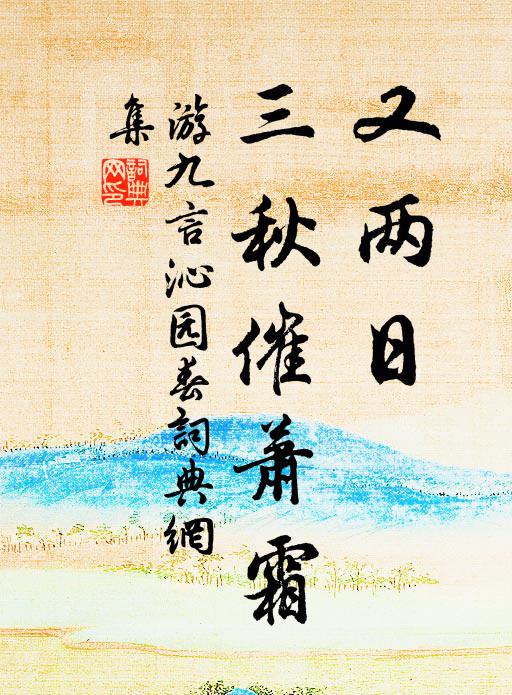 又两日
三秋催萧霜
游九言沁园春詞典網
集
詞典
网印